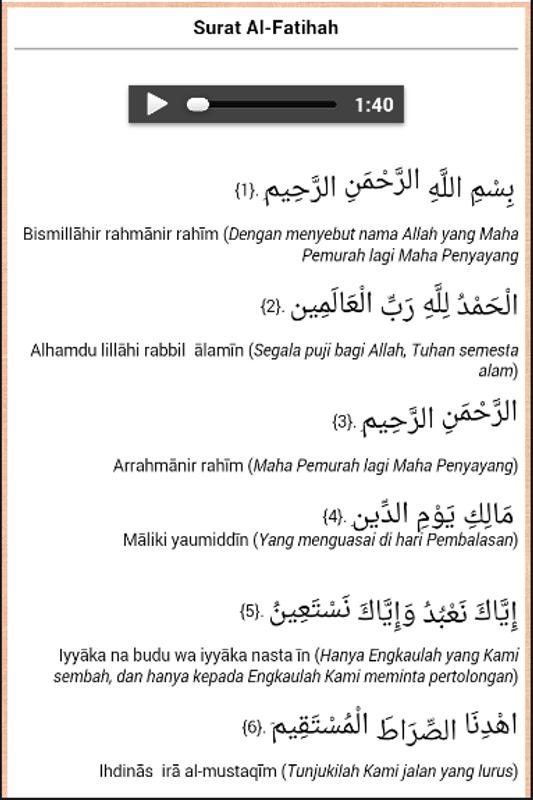 Surat Al-Fatihah
1:40
بِسْمِ اللَّهِ الرَّحْمَنِ الرَّحِيم .{1}
Bismillāhir rahmānir rahīm (Dengan menyebut nama Allah yang Maha
Pemurah lagi Maha Penyayang
الْحَمْدُ لِلَّهِ رَبِّ الْعَالَمِين .{2}
Alhamdu lillāhi rabbil ālamīn (Segala puji bagi Allah, Tuhan semesta
alam)
الرَّحْمَنِ الرَّحِيم .{3}
Arrahmānir rahīm (Maha Pemurah lagi Maha Penyayang)
مَالِكِ يَوْمِ الدِّين .{4}
Māliki yaumiddīn (Yang menguasai di hari Pembalasan)
إِيَّاكَ نَعْبُدُ وَإِيَّاكَ نَسْتَعِينُ .{5}
Iyyāka na budu wa iyyāka nasta īn (Hanya Engkaulah yang Kami
sembah, dan hanya kepada Engkaulah Kami meminta pertolongan)
اهْدِنَا الصِّرَاطَ الْمُسْتَقِيمَ .{6}
Ihdinās irā al-mustaqīm (Tunjukilah Kami jalan yang lurus)